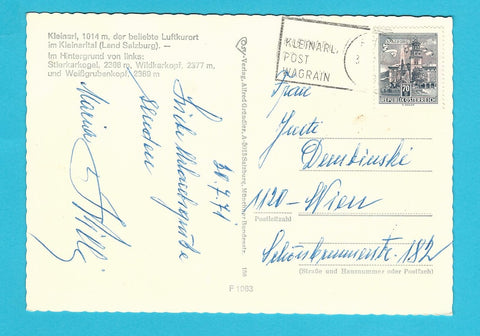 Kleinarl, 1014 m, der beliebte Luftkurort
im Kleinarltal (Land Salzburg). —
Im Hintergrund von links:
Stierkarkogel, 2308 m, Wildkarkopf, 2377 m,
und Weißgrubenkopf, 2369 m
30.7.71
Liebe Urlaubsgrüße
senden
Maria & Willi
Cosy-Verlag Alfred Gründler, A-5015 Salzburg, Münchner Bundesstr. 156
F 1063
KLEINARL,
POST
WAGRAIN
70
REPUBLIK ÖSTERREICH
Frau
Justi
Dembinski
1120-Wien
Postleitzahl
Schönbrunnerstr. 182
(Straße und Hausnummer oder Postfach)